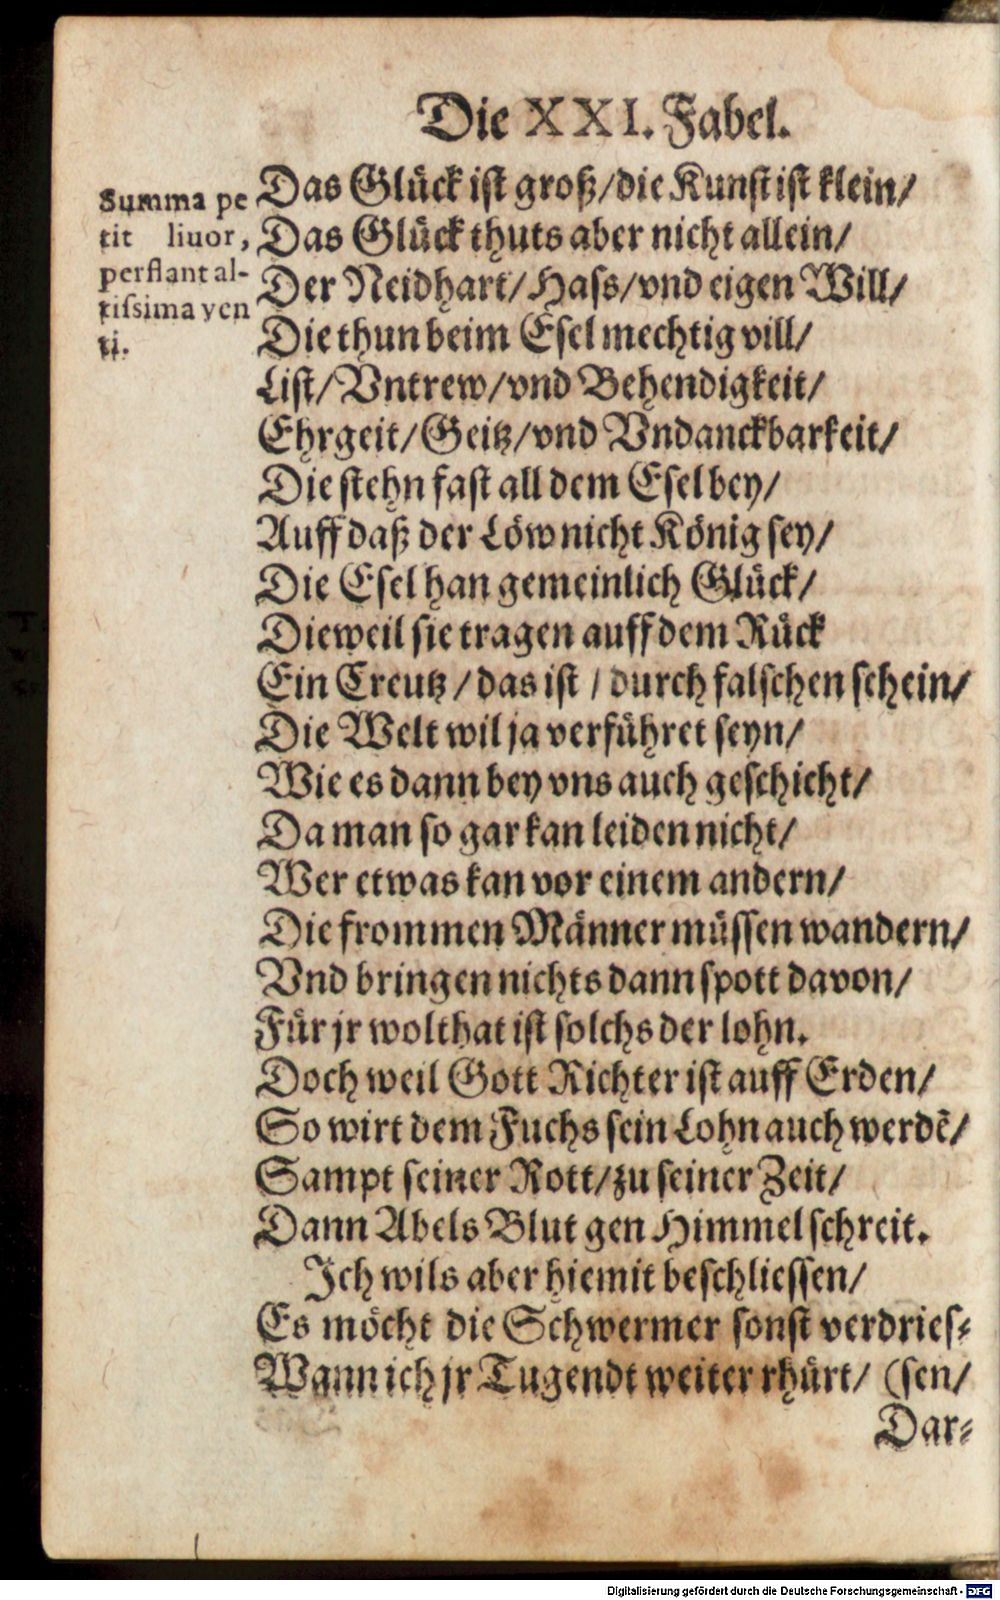 Die XXI. Fabel.
Summa pe
tit liuor,
perflant al-
tissima ven
ti.
Das Glück ist groß/die Kunst ist klein/
Das Glück thuts aber nicht allein/
Der Neidhart/Hass/vnd eigen Will/
Die thun beim Esel mechtig vill/
List/Vntrew/vnd Behendigkeit/
Ehrgeit/Geitz/vnd Vndanckbarkeit/
Die stehn fast all dem Esel bey/
Auff daß der Löw nicht König sey/
Die Esel han gemeinlich Glück/
Dieweil sie tragen auff dem Rück
Ein Creutz/das ist/durch falschen schein/
Die Welt wil ja verführet seyn/
Wie es dann bey vns auch geschicht/
Da man so gar kan leiden nicht/
Wer etwas kan vor einem andern/
Die frommen Männer müssen wandern/
Vnd bringen nichts dann spott davon/
Für jr wolthat ist solchs der lohn.
Doch weil Gott Richter ist auff Erden/
So wirt dem Fuchs sein Lohn auch werdẽ/
Sampt seiner Rott/zu seiner Zeit/
Dann Abels Blut gen Himmel schreit.
Ich wils aber hiemit beschliessen/
Es möcht die Schwermer sonst verdries-
Wann ich jr Tugendt weiter rhürt/ (sen/
Dar-
Digitalisierung gefördert durch die Deutsche Forschungsgemeinschaft - DFG